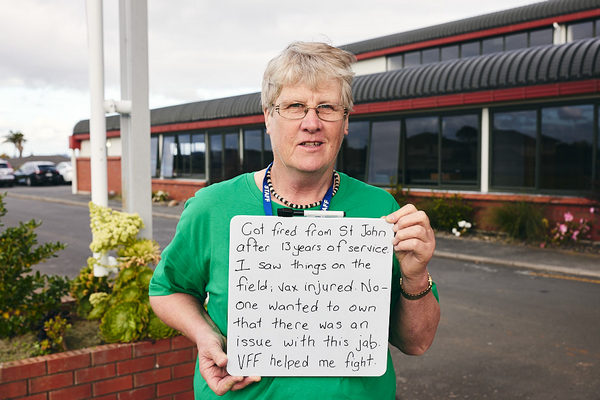 Got fired from St John
after 13 years of service.
I saw things on the
field; vax injured. No-
one wanted to own
that there was an
issue with this jab.
VFF helped me fight.